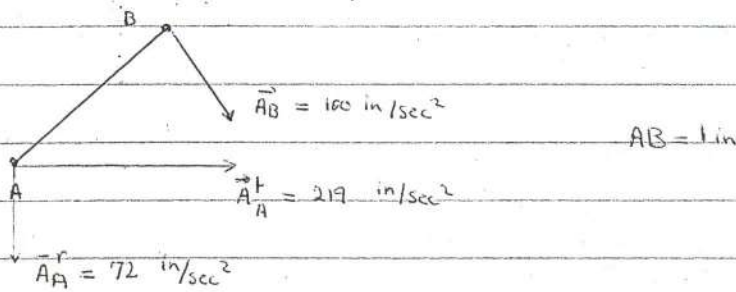 B
A⃗B = 100 in/sec²
AB = 1 in
A
A⃗ᵗA = 219 in/sec²
A⃗ʳA = 72 in/sec²